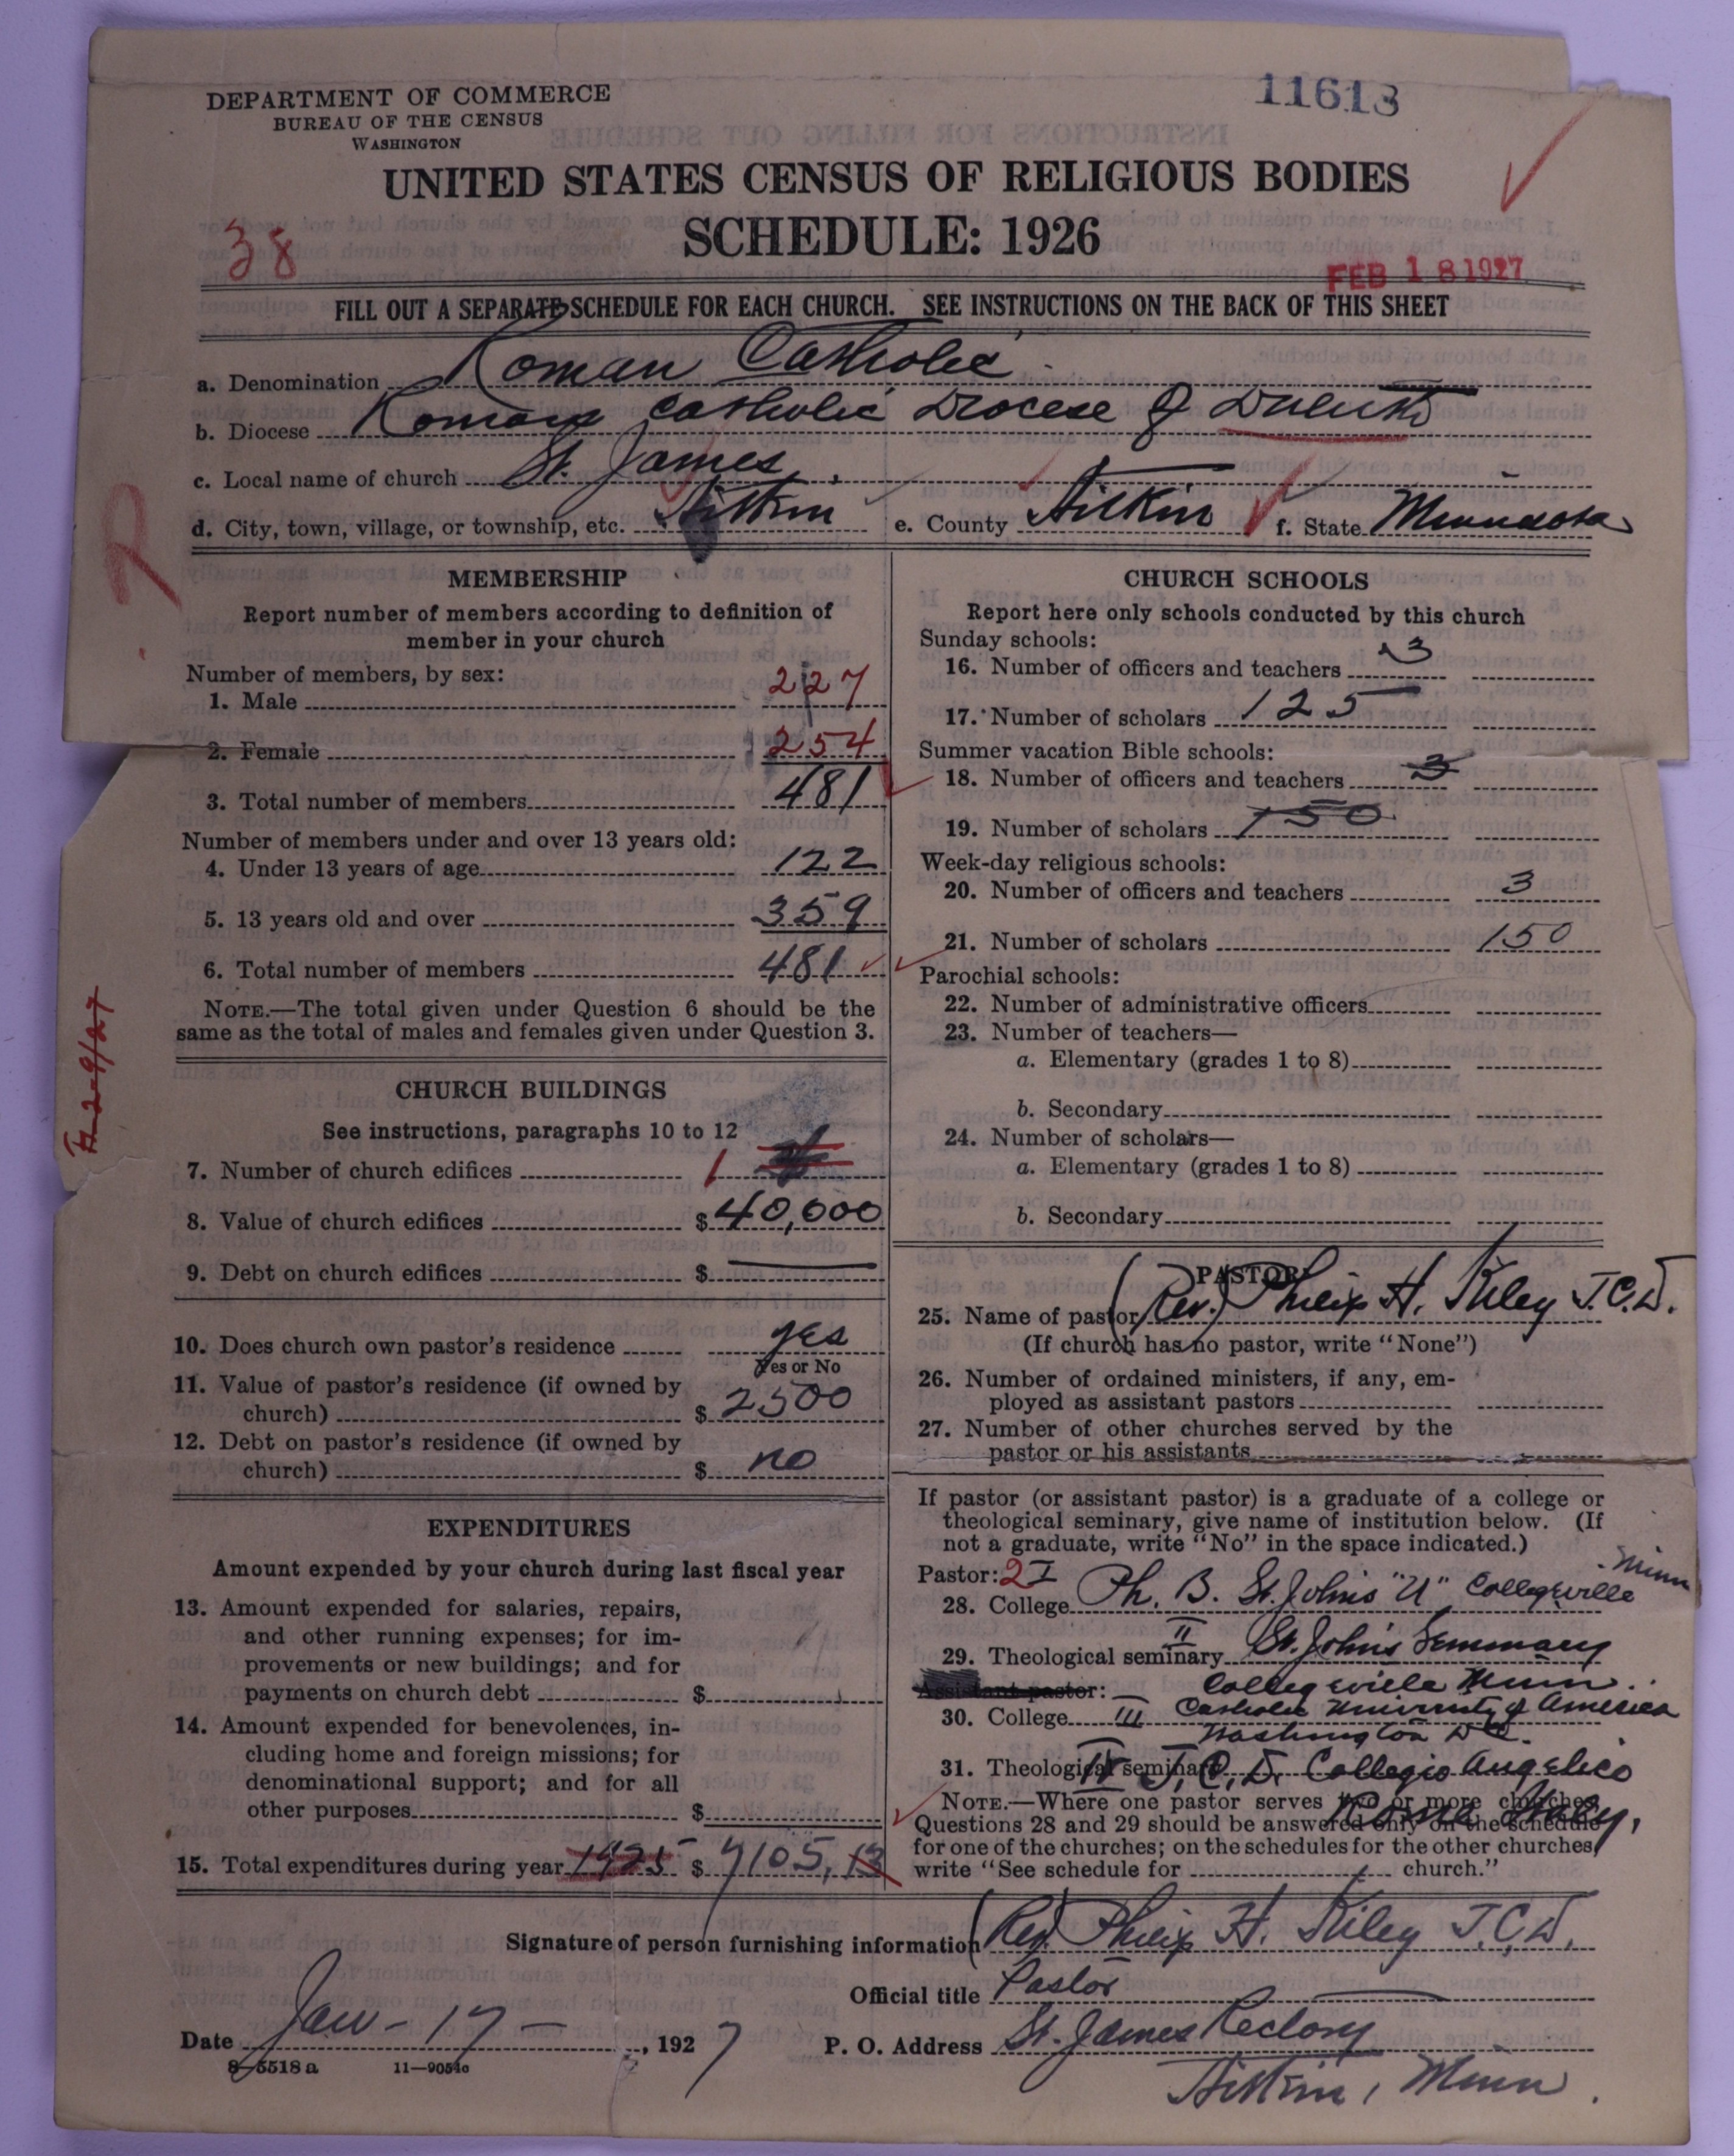 11613
DEPARTMENT OF COMMERCE
BUREAU OF THE CENSUS
WASHINGTON
UNITED STATES CENSUS OF RELIGIOUS BODIES
SCHEDULE: 1926
38
FEB 18 1927
FILL OUT A SEPARATE SCHEDULE FOR EACH CHURCH. SEE INSTRUCTIONS ON THE BACK OF THIS SHEET
a. Denomination Roman Catholic
b. Diocese Roman Catholic Diocese of Duluth
c. Local name of church St. James
d. City, town, village, or township, etc. Aitkin e. County Aitkin f. State Minnesota
MEMBERSHIP
Report number of members according to definition of
member in your church
Number of members, by sex:
1. Male 227
2. Female 254
3. Total number of members 481
Number of members under and over 13 years old:
4. Under 13 years of age 122
5. 13 years old and over 359
6. Total number of members 481
NOTE.—The total given under Question 6 should be the
same as the total of males and females given under Question 3.
CHURCH BUILDINGS
See instructions, paragraphs 10 to 12
7. Number of church edifices 1
8. Value of church edifices $ 40,000
9. Debt on church edifices $ —
10. Does church own pastor's residence yes
Yes or No
11. Value of pastor's residence (if owned by
church) $ 2500
12. Debt on pastor's residence (if owned by
church) $ no
EXPENDITURES
Amount expended by your church during last fiscal year
13. Amount expended for salaries, repairs,
and other running expenses; for im-
provements or new buildings; and for
payments on church debt $
14. Amount expended for benevolences, in-
cluding home and foreign missions; for
denominational support; and for all
other purposes $
15. Total expenditures during year 1925 $ 7105,13
CHURCH SCHOOLS
Report here only schools conducted by this church
Sunday schools:
16. Number of officers and teachers 3
17. Number of scholars 125
Summer vacation Bible schools:
18. Number of officers and teachers 3
19. Number of scholars 150
Week-day religious schools:
20. Number of officers and teachers 3
21. Number of scholars 150
Parochial schools:
22. Number of administrative officers
23. Number of teachers—
a. Elementary (grades 1 to 8)
b. Secondary
24. Number of scholars—
a. Elementary (grades 1 to 8)
b. Secondary
PASTOR
25. Name of pastor (Rev.) Philip H. Kiley J.C.D.
(If church has no pastor, write "None")
26. Number of ordained ministers, if any, em-
ployed as assistant pastors
27. Number of other churches served by the
pastor or his assistants
If pastor (or assistant pastor) is a graduate of a college or
theological seminary, give name of institution below. (If
not a graduate, write "No" in the space indicated.)
Pastor: 2 I
28. College Ph. B. St. Johns "U" Collegeville Minn
29. Theological seminary II St. Johns Seminary
Assistant pastor: Collegeville Minn.
30. College III Catholic University of America
Washington D.C.
31. Theological seminary IV J.C.D. Collegio Angelico
Rome Italy,
NOTE.—Where one pastor serves two or more churches,
Questions 28 and 29 should be answered only on the schedule
for one of the churches; on the schedules for the other churches,
write "See schedule for church."
Signature of person furnishing information (Rev) Philip H. Kiley J.C.D.
Official title Pastor
Date Jan - 17 - , 1927 P. O. Address St. James Rectory
Aitkin, Minn.
8—5518 a 11—9054a